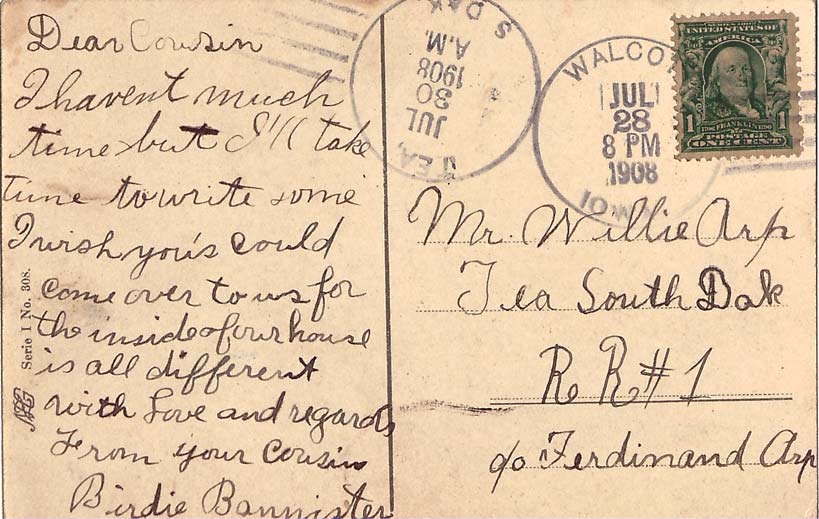 Dear Cousin
I havent much
time but I'll take
time to write some
I wish you's could
come over to us for
the inside of our house
is all different
with Love and regards
From your Cousin
Birdie Bannister
Serie I No. 308.
TEA,
S. DAK
JUL
30
1908
A.M.
WALCO
IOWA
JUL
28
8 PM
1908
UNITED STATES OF
AMERICA
1
1
FRANKLIN
POSTAGE
ONE CENT
Mr. Willie Arp
Tea South Dak
R R # 1
c/o Ferdinand Arp